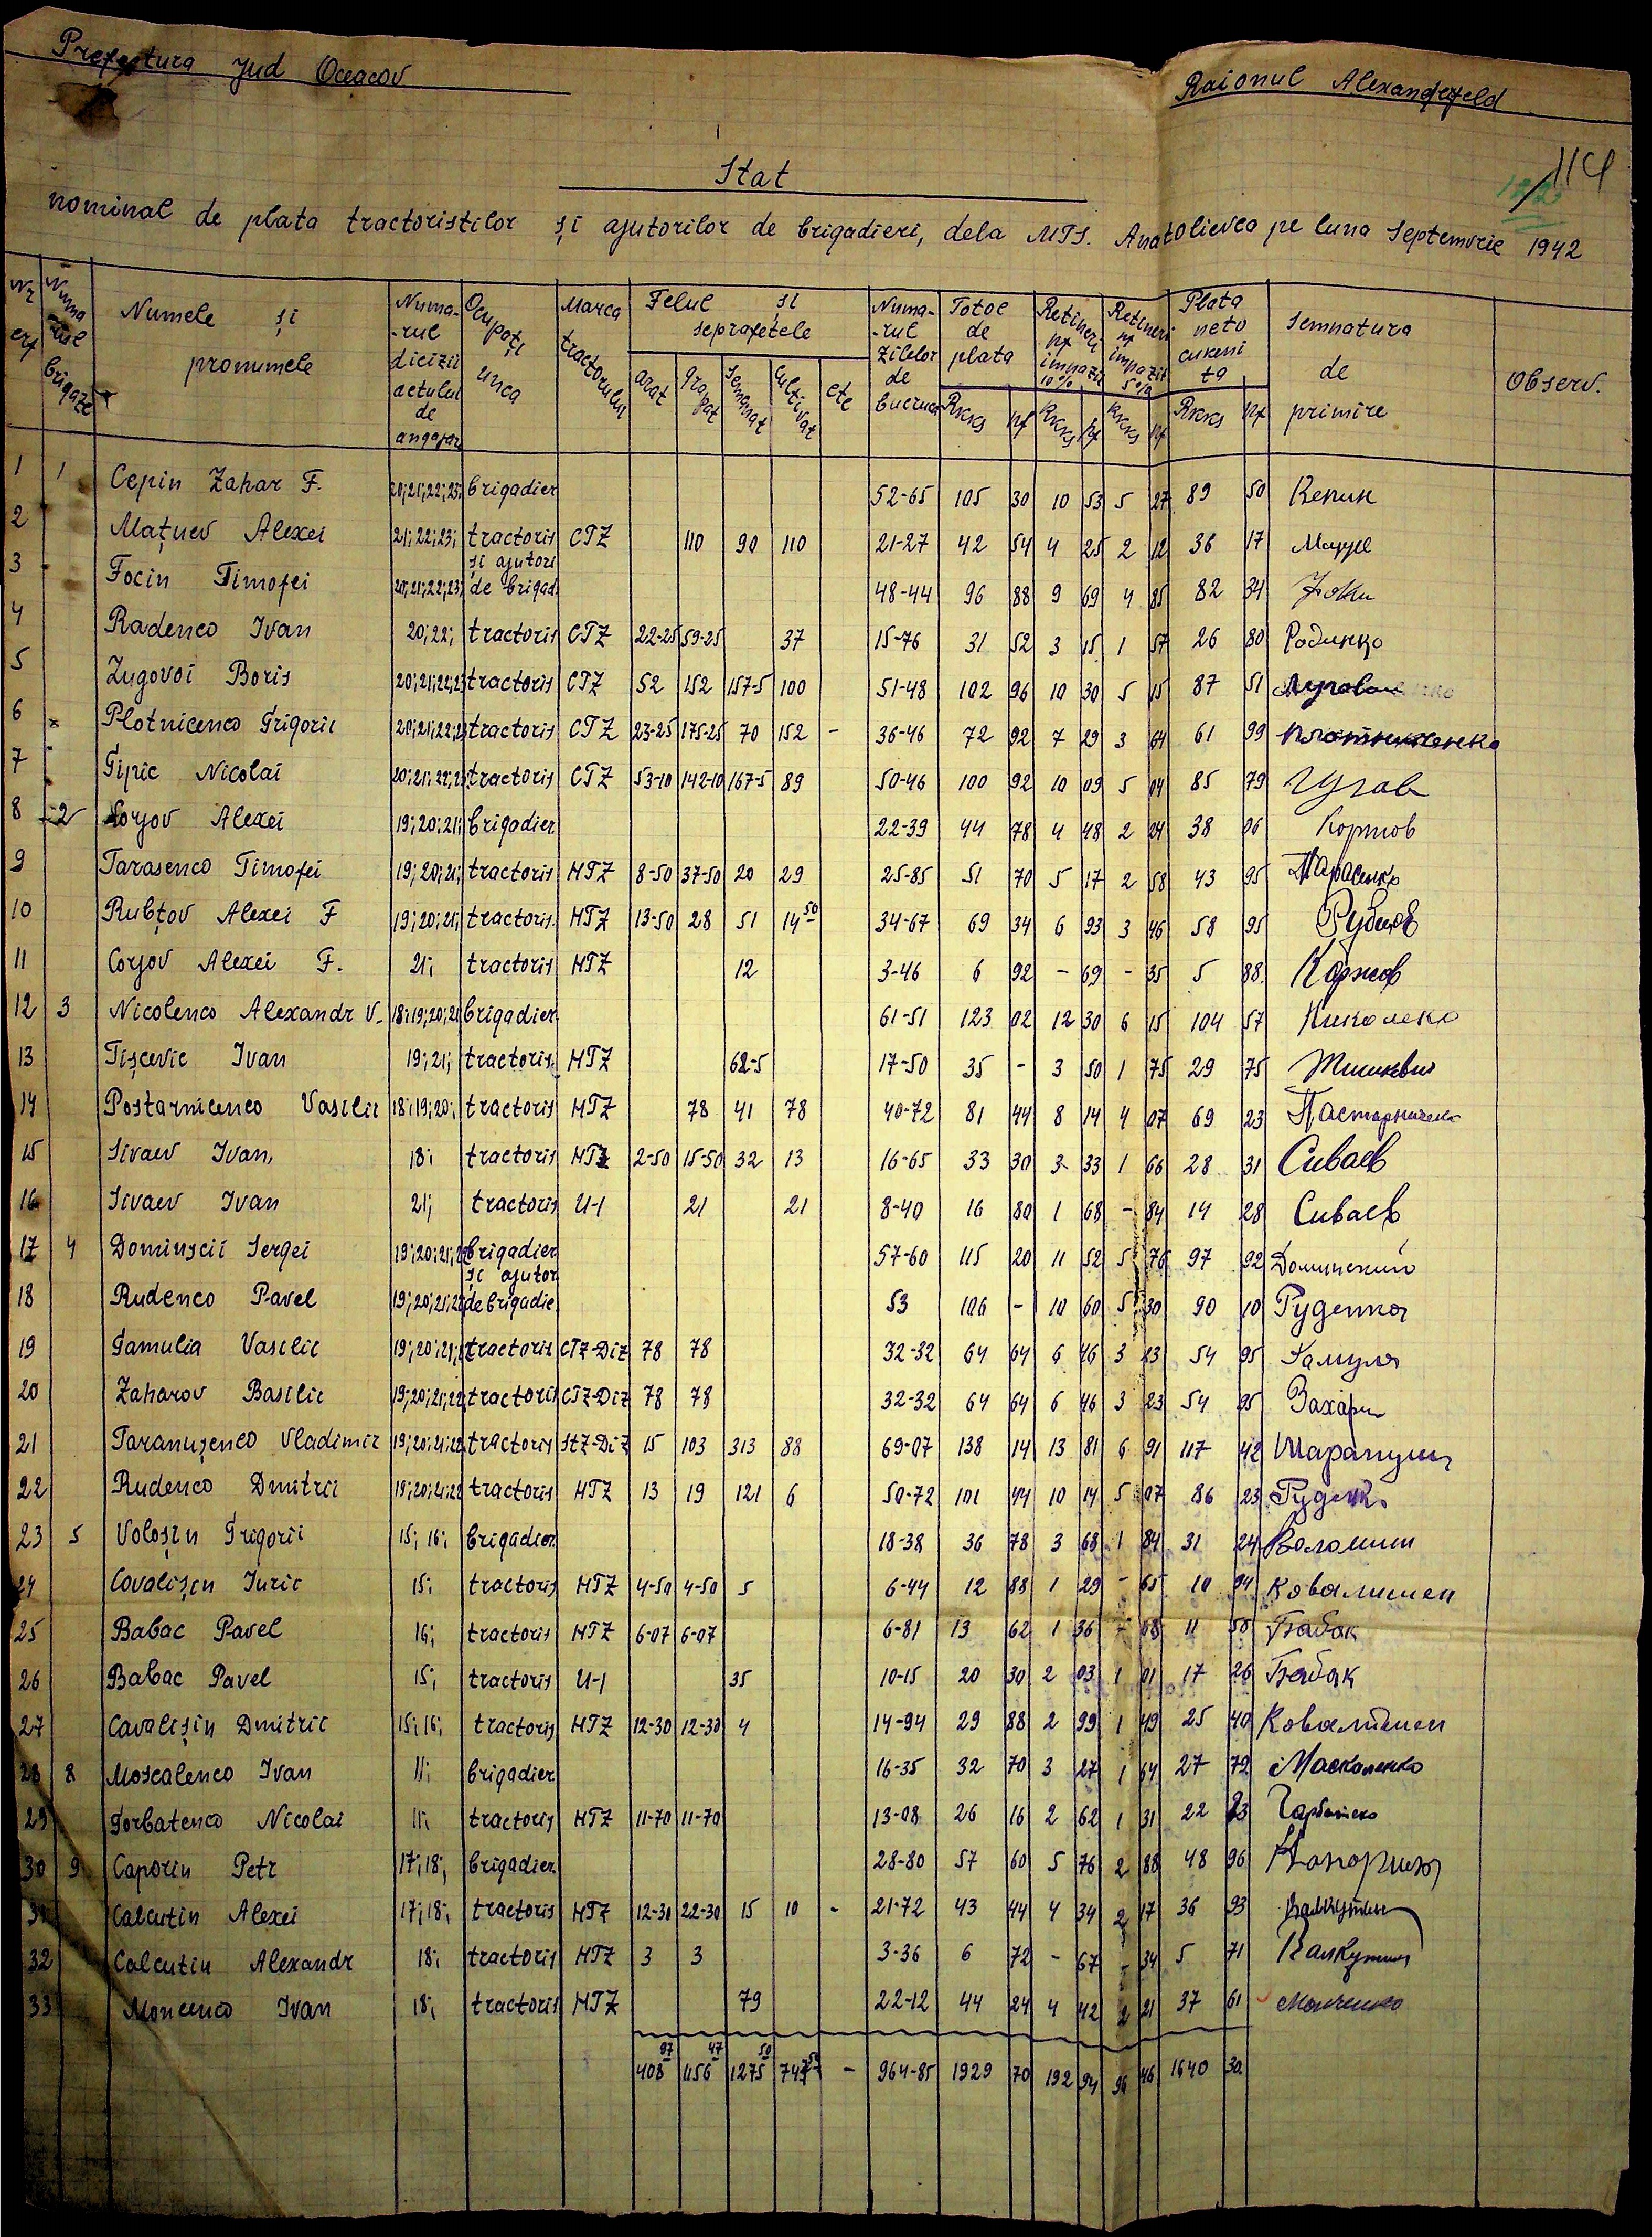 Prefectura Jud Oceacov
Raionul Alexanderfeld
114
Stat
nominal de plata tractoristilor și ajutorilor de brigadieri, dela MTS. Anatolievca pe luna Septemvrie 1942
Nr crt | Numarul brigaze | Numele și pronumele | Numa-rul dicizii actului de angajar | Ocupați unea | Marca tractorului | Felul și seprafetele | Numa-rul zilelor de lucrat | Totol de plata | Retineri pt impazit 10% | Retineri pt impozit 5% | Plata neto cuveni ta | Semnatura de primire | Observ.
arat | grapat | semenat | cultivat | etc | Rkks | pf | Rkks | pf | Rkks | pf | Rkks | pf
1 1 Cepin Zahar F. 20;21;22;23; brigadier 52-65 105 30 10 53 5 27 89 50 Кепин
2 Mațuev Alexei 21;22;23; tractoris CTZ 110 90 110 21-27 42 54 4 25 2 12 36 17
3 Focin Timofei 20;21;22;23; și ajutori de brigad. 48-44 96 88 9 69 4 85 82 34
4 Radenco Ivan 20;22; tractoris CTZ 22-25 59-25 37 15-76 31 52 3 15 1 57 26 80 Родинко
5 Zugovoi Boris 20;21;22;23 tractoris CTZ 52 152 157-5 100 51-48 102 96 10 30 5 15 87 51
6 Plotnicenco Grigorii 20;21;22;23 tractoris CTZ 23-25 175-25 70 152 - 36-46 72 92 7 29 3 64 61 99 Плотниченко
7 Gipic Nicolai 20;21;22;23 tractoris CTZ 53-10 142-10 167-5 89 50-46 100 92 10 09 5 04 85 79
8 2 Corjov Alexei 19;20;21; brigadier 22-39 44 78 4 48 2 24 38 06 Коржов
9 Tarasenco Timofei 19;20;21; tractoris HTZ 8-50 37-50 20 29 25-85 51 70 5 17 2 58 43 95 Тарасенко
10 Rubțov Alexei F 19;20;21; tractoris. HTZ 13-50 28 51 14 50 34-67 69 34 6 93 3 46 58 95 Рубцов
11 Corjov Alexei F. 21; tractoris HTZ 12 3-46 6 92 - 69 - 35 5 88. Коржов
12 3 Nicolenco Alexandr V. 18;19;20;21 brigadier 61-51 123 02 12 30 6 15 104 57 Николенко
13 Tișcevic Ivan 19;21; tractoris. HTZ 62-5 17-50 35 - 3 50 1 75 29 75
14 Postarnicenco Vasilii 18;19;20; tractoris HTZ 78 41 78 40-72 81 44 8 14 4 07 69 23 Пастарниченко
15 Sivaev Ivan, 18; tractoris HTZ 2-50 15-50 32 13 16-65 33 30 3 33 1 66 28 31 Сиваев
16 Sivaev Ivan 21; tractoris U-1 21 21 8-40 16 80 1 68 - 84 14 28 Сиваев
17 4 Dominscii Sergei 19;20;21;22 brigadier 57-60 115 20 11 52 5 76 97 92 Доминский
18 Rudenco Pavel 19;20;21;22 și ajutor de brigadie. 53 106 - 10 60 5 30 90 10 Руденко
19 Gamulia Vasilie 19;20;21; tractoris CTZ-Diz 78 78 32-32 64 64 6 46 3 23 54 95 Гамуля
20 Zaharov Basilie 19;20;21;22 tractoris CTZ-Diz 78 78 32-32 64 64 6 46 3 23 54 95
21 Taranușenco Vladimir 19;20;21;22 tractoris STZ-Diz 15 103 313 88 69-07 138 14 13 81 6 91 117 42
22 Rudenco Dmitrii 19;20;21;22 tractoris HTZ 13 19 121 6 50-72 101 44 10 14 5 07 86 23
23 5 Voloșin Grigorii 15; 16; brigadier. 18-38 36 78 3 68 1 84 31 24 Волошин
24 Covalișen Iurie 15; tractoris HTZ 4-50 4-50 5 6-44 12 88 1 29 - 65 10 94 Ковалишен
25 Babac Pavel 16; tractoris HTZ 6-07 6-07 6-81 13 62 1 36 - 68 11 58 Бабак
26 Babac Pavel 15; tractoris U-1 35 10-15 20 30 2 03 1 01 17 26 Бабак
27 Cavalișin Dmitrie 15;16; tractoris HTZ 12-30 12-30 4 14-94 29 88 2 99 1 49 25 40 Ковалишен
28 8 Moscalenco Ivan 11; brigadier 16-35 32 70 3 27 1 64 27 79 Москаленко
29 Gorbatenco Nicolai 11; tractoris HTZ 11-70 11-70 13-08 26 16 2 62 1 31 22 23
30 9 Caporin Petr 17;18; brigadier. 28-80 57 60 5 76 2 88 48 96
31 Calcutin Alexei 17;18; tractoris HTZ 12-30 22-30 15 10 - 21-72 43 44 4 34 2 17 36 93 Калкутин
32 Calcutin Alexandr 18; tractoris HTZ 3 3 3-36 6 72 - 67 - 34 5 71 Калкутин
33 Moncenco Ivan 18; tractoris HTZ 79 22-12 44 24 4 42 2 21 37 61 Монченко
408 97 1156 47 1275 50 747 50 - 964-85 1929 70 192 94 96 46 1640 30.